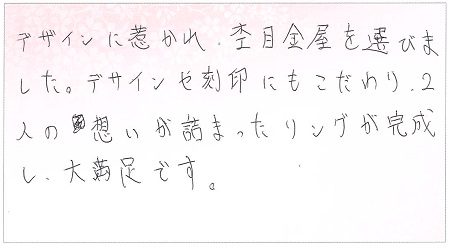 デザインに惹かれ、杢目金屋を選びま
した。デザインや刻印にもこだわり、2
人の想いが詰まったリングが完成
し、大満足です。